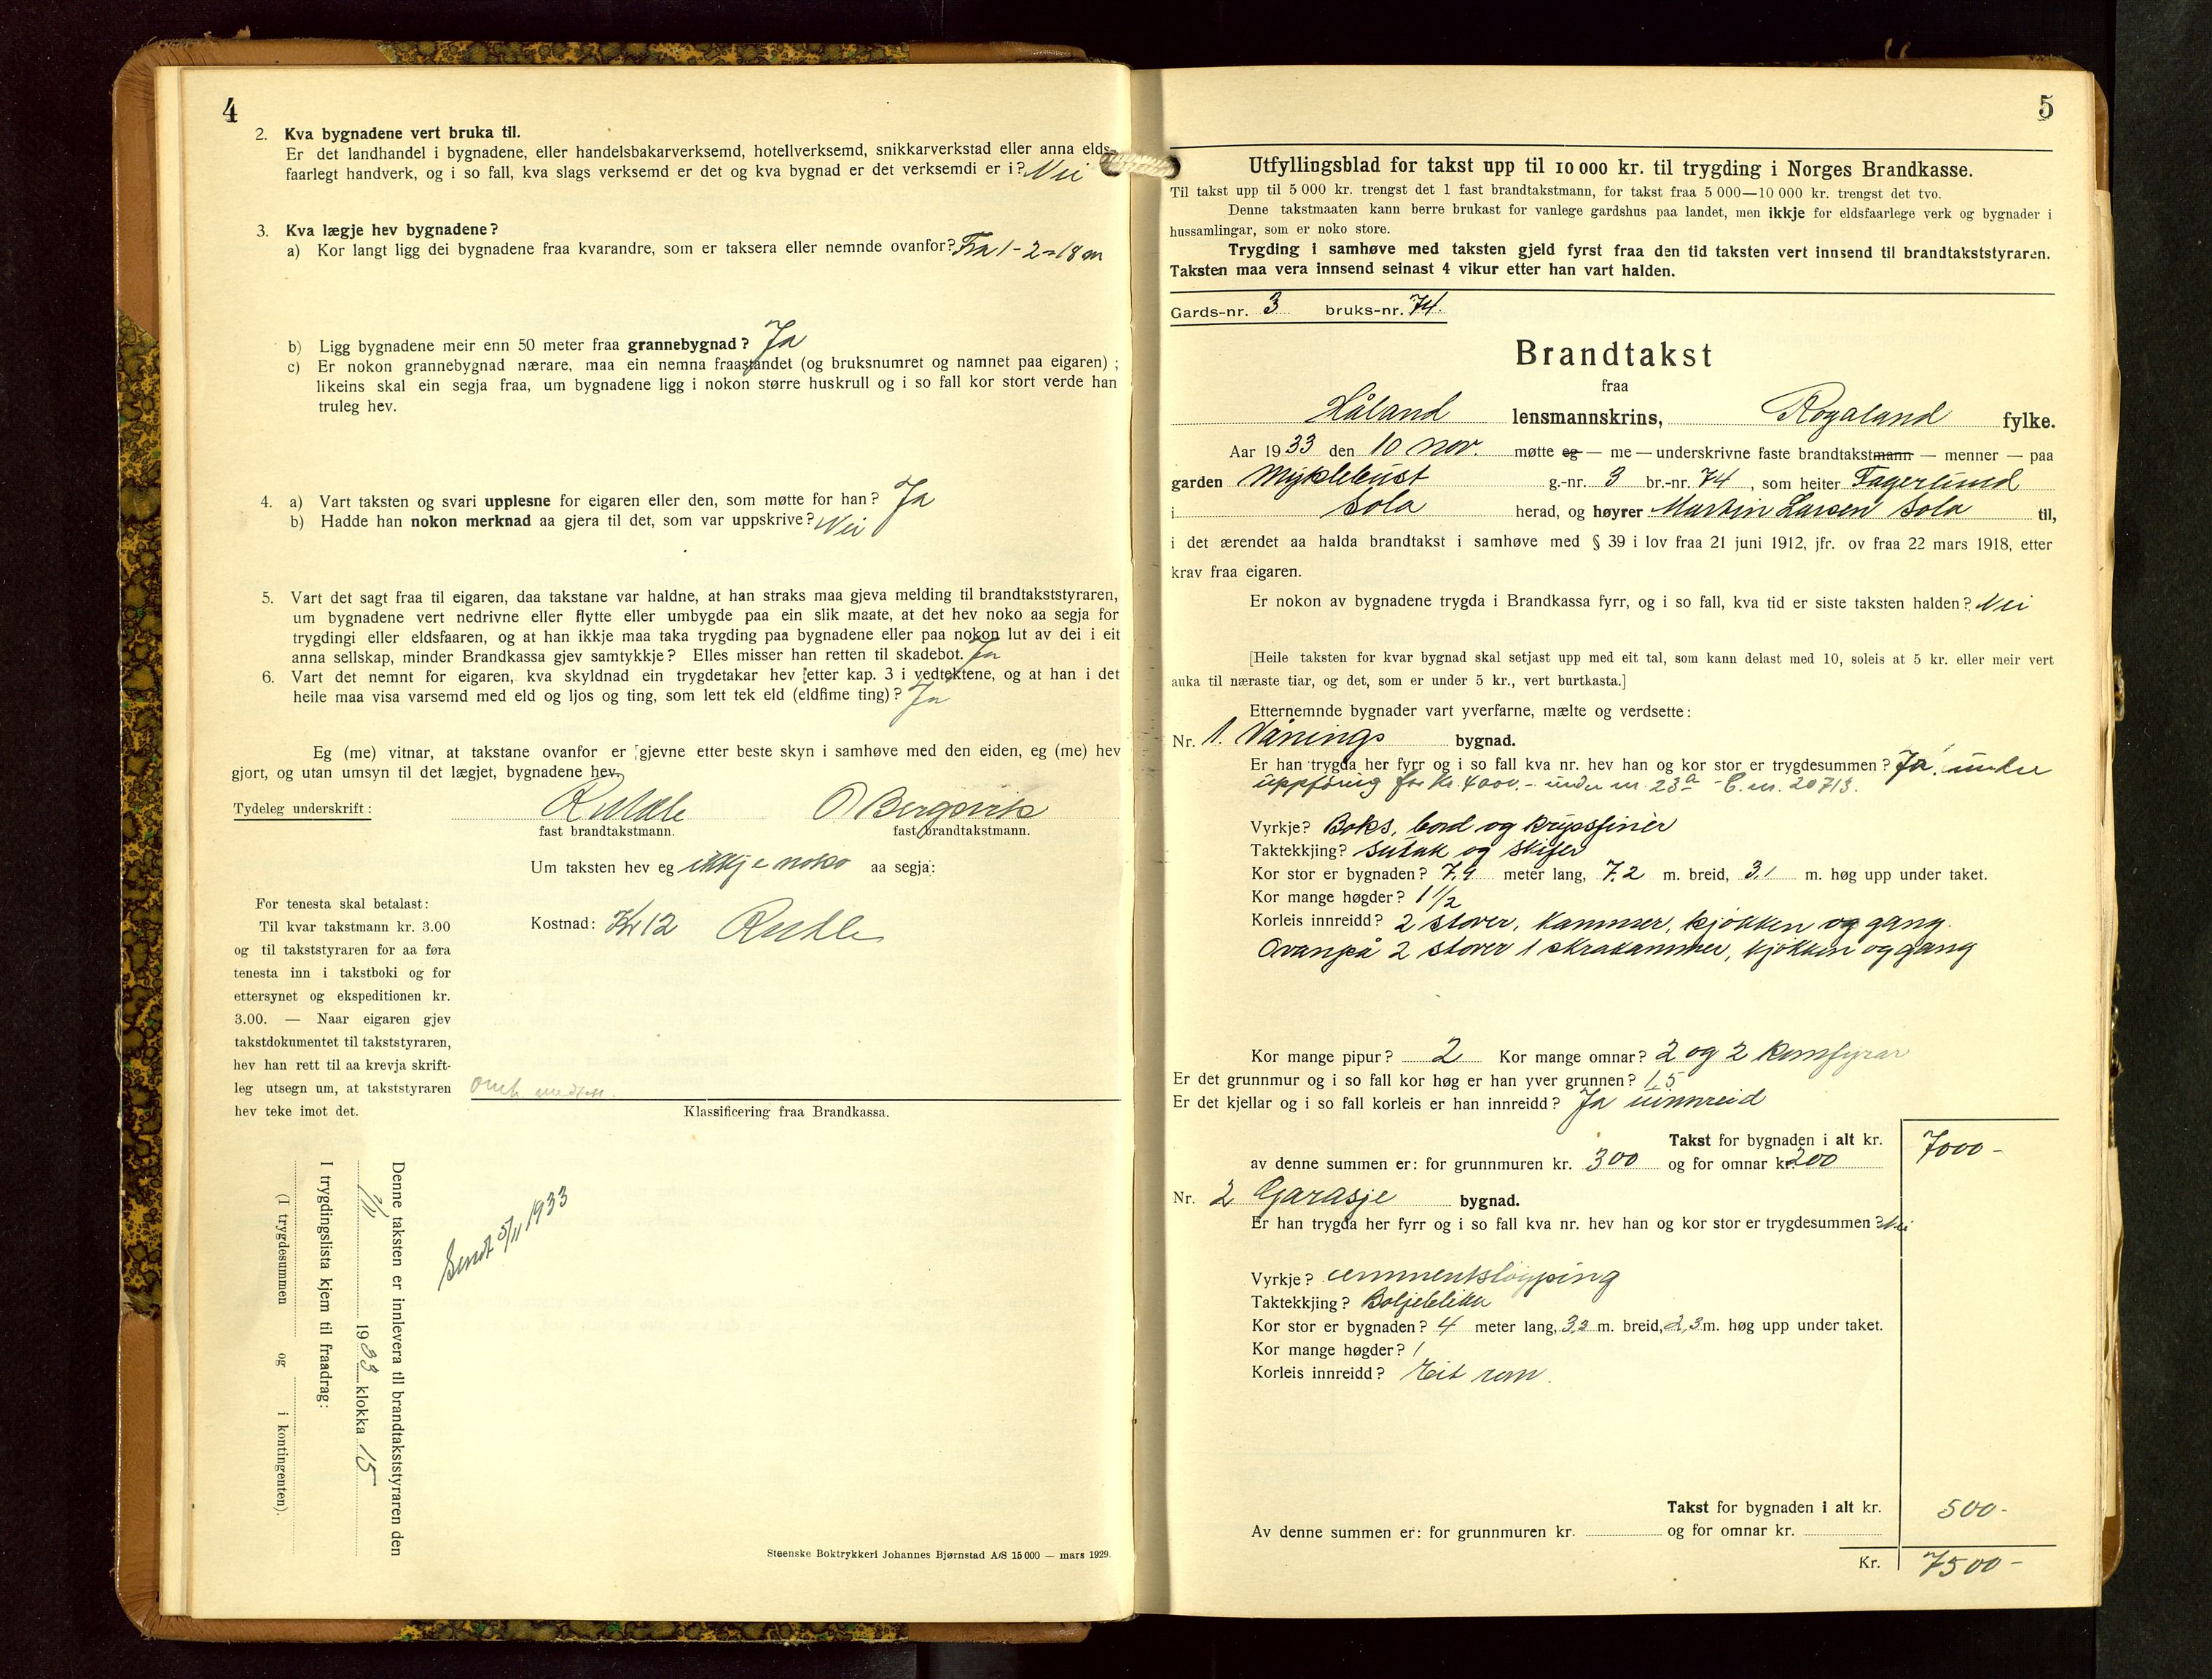 4
2. Kva bygnadene vert bruka til.
Er det landhandel i bygnadene, eller handelsbakarverksemd, hotellverksemd, snikkarverkstad eller anna elds-
faarlegt handverk, og i so fall, kva slags verksemd er det og kva bygnad er det verksemdi er i? Nei
3. Kva lægje hev bygnadene?
a) Kor langt ligg dei bygnadene fraa kvarandre, som er taksera eller nemnde ovanfor? Fra 1-2=18 m
b) Ligg bygnadene meir enn 50 meter fraa grannebygnad? Ja
c) Er nokon grannebygnad nærare, maa ein nemna fraastandet (og bruksnumret og namnet paa eigaren);
likeins skal ein segja fraa, um bygnadene ligg i nokon større huskrull og i so fall kor stort verde han
truleg hev.
4. a) Vart taksten og svari upplesne for eigaren eller den, som møtte for han? Ja
b) Hadde han nokon merknad aa gjera til det, som var uppskrive? Nei
5. Vart det sagt fraa til eigaren, daa takstane var haldne, at han straks maa gjeva melding til brandtakststyraren,
um bygnadene vert nedrivne eller flytte eller umbygde paa ein slik maate, at det hev noko aa segja for
trygdingi eller eldsfaaren, og at han ikkje maa taka trygding paa bygnadene eller paa nokon lut av dei i eit
anna sellskap, minder Brandkassa gjev samtykkje? Elles misser han retten til skadebot. Ja
6. Vart det nemnt for eigaren, kva skyldnad ein trygdetakar hev etter kap. 3 i vedtektene, og at han i det
heile maa visa varsemd med eld og ljos og ting, som lett tek eld (eldfime ting)? Ja
Eg (me) vitnar, at takstane ovanfor er gjevne etter beste skyn i samhøve med den eiden, eg (me) hev
gjort, og utan umsyn til det lægjet, bygnadene hev.
Tydeleg underskrift: O Bergsvik
fast brandtakstmann. fast brandtakstmann.
Um taksten hev eg ikkje noko aa segja:
Kostnad: Kr 12
For tenesta skal betalast:
Til kvar takstmann kr. 3.00
og til takststyraren for aa føra
tenesta inn i takstboki og for
ettersynet og ekspeditionen kr.
3.00. — Naar eigaren gjev
takstdokumentet til takststyraren,
hev han rett til aa krevja skrift-
leg utsegn um, at takststyraren
hev teke imot det.
Klassificering fraa Brandkassa.
Denne taksten er innlevera til brandtakststyraren den
1933 klokka 15
I trygdingslista kjem til fraadrag:
(I trygdesummen og i kontingenten).
Sendt 5/11 1933
Steenske Boktrykkeri Johannes Bjørnstad A/S 15 000 — mars 1929.
5
Utfyllingsblad for takst upp til 10 000 kr. til trygding i Norges Brandkasse.
Til takst upp til 5 000 kr. trengst det 1 fast brandtakstmann, for takst fraa 5 000—10 000 kr. trengst det tvo.
Denne takstmaaten kann berre brukast for vanlege gardshus paa landet, men ikkje for eldsfaarlege verk og bygnader i
hussamlingar, som er noko store.
Trygding i samhøve med taksten gjeld fyrst fraa den tid taksten vert innsend til brandtakststyraren.
Taksten maa vera innsend seinast 4 vikur etter han vart halden.
Gards-nr. 3 bruks-nr. 74.
Brandtakst
fraa
Håland lensmannskrins, Rogaland fylke.
Aar 1933 den 10 nov. møtte eg — me — underskrivne faste brandtakstmann — menner — paa
garden Myklebust g.-nr. 3 br.-nr. 74, som heiter Fagerlund
i Sola herad, og høyrer Martin Larsen Sola til,
i det ærendet aa halda brandtakst i samhøve med § 39 i lov fraa 21 juni 1912, jfr. ov fraa 22 mars 1918, etter
krav fraa eigaren.
Er nokon av bygnadene trygda i Brandkassa fyrr, og i so fall, kva tid er siste taksten halden? Nei
[Heile taksten for kvar bygnad skal setjast upp med eit tal, som kann delast med 10, soleis at 5 kr. eller meir vert
auka til næraste tiar, og det, som er under 5 kr., vert burtkasta.]
Etternemnde bygnader vart yverfarne, mælte og verdsette:
Nr. 1. Vånings bygnad.
Er han trygda her fyrr og i so fall kva nr. hev han og kor stor er trygdesummen? Ja. under
uppföring for kr. 4000.- under nr. 23a - C. nr. 20713.
Vyrkje? Boks, bord og krypsfinèr
Taktekkjing? sutak og skifer
Kor stor er bygnaden? 7,9 meter lang, 7,2 m. breid, 3,1 m. høg upp under taket.
Kor mange høgder? 1 1/2
Korleis innreidd? 2 stover, kammer, kjøkken og gang.
Ovanpå 2 stover 1 skrakammer, kjøkken og gang
Kor mange pipur? 2 Kor mange omnar? 2 og 2 komfyrar
Er det grunnmur og i so fall kor høg er han yver grunnen? 1,5
Er det kjellar og i so fall korleis er han innreidd? Ja uinnreid
Takst for bygnaden i alt kr. 7000-
av denne summen er: for grunnmuren kr. 300 og for omnar kr. 200
Nr. 2 Garasje bygnad.
Er han trygda her fyrr og i so fall kva nr. hev han og kor stor er trygdesummen? Nei
Vyrkje? cementstøyping
Taktekkjing? Boljeblikk
Kor stor er bygnaden? 4 meter lang, 3,2 m. breid, 2,3 m. høg upp under taket.
Kor mange høgder? 1
Korleis innreidd? Eit rom.
Takst for bygnaden i alt kr. 500-
Av denne summen er: for grunnmuren kr. og for omnar kr.
Kr. 7500-